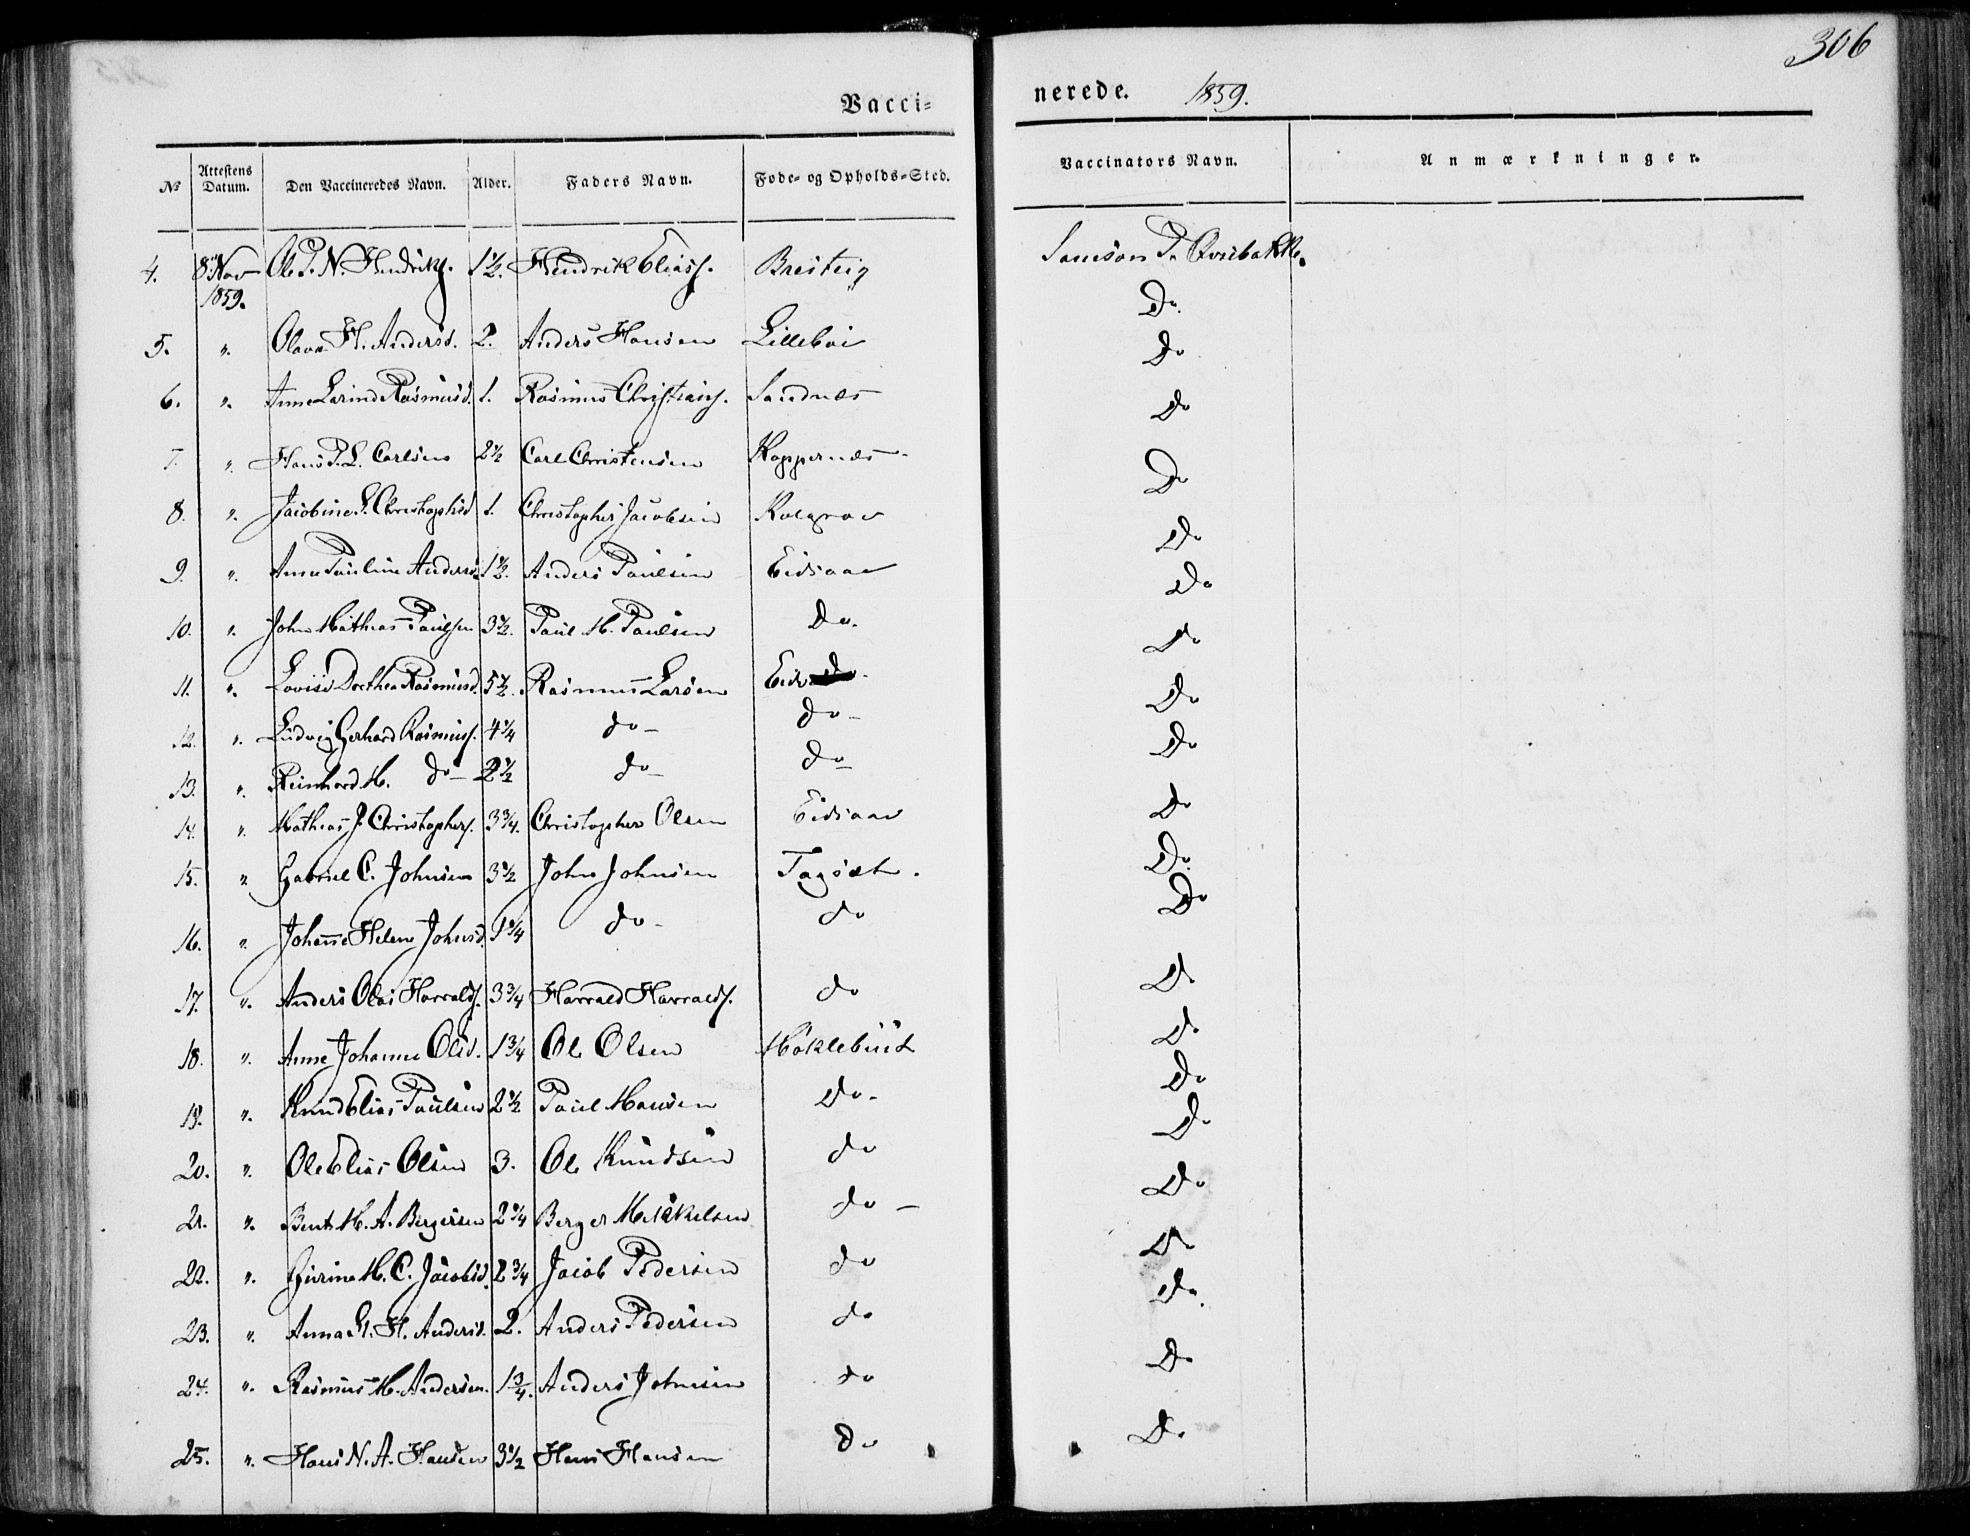 306
Vacci- nerede. 1859.
No Attestens Datum. Den Vaccineredes Navn. Alder. Faders Navn. Føde- og Opholds-Sted. Vaccinators Navn. Anmærkninger.
4. 8 Nov 1859. Ole P. N. Hendriks. 1½. Hendrik Eliass. Breiteig Samson P. Qvibakke.
Do.
5. ". Olava H. Andersd. 2. Anders Hansen Lillebøe Do
6. ". Anne Larine Rasmusd. 1. Rasmus Christians. Sandnes Do
7. ". Hans P. L. Carlsen 2½ Carl Christensen Koppernes Do
8. ". Jacobine S. Christophsd 1. Christopher Jacobsen Do
9. ". Anne Pauline Andersd. 1½. Anders Paulsen Eidsaae Do
10. ". John Mathias Paulsen 3½. Paul M. Paulsen Do. Do
11. ". Lovise Dorthea Rasmusd. 5½. Rasmus Larsen Do
12. ". Ludvig Gerhard Rasmuss. 4¼ do- do- Do
13. ". Reinhard M. do- 2½ do- do- Do
14. ". Mathias J. Christophers. 3¾. Christopher Olsen Eidsaae Do
15. " Gabriel C. Johnsen 3½ John Johnsen Tagsæt. Do.
16. ". Johanne Helene Johnsd. 1¼ do- do Do
17. ". Anders Olai Harralds. 3¾ Harrald Harralds. do Do
18. ". Anne Johanne Olsd. 1¾ Ole Olsen Møklebust Do
19. ". Knud Elias Paulsen 2½ Paul Hansen Do- Do
20. ". Ole Elias Olsen 3. Ole Knudsen do Do
21. ". Bent M. A. Bergersen 2¼ Berger Mikkelsen do- Do
22. ". Gurine M. C. Jacobsd. 2¾ Jacob Pedersen do Do
23. ". Anna H. Andersd. 2. Anders Pedersen do Do.
24. ". Rasmus M. Andersen. 1¾. Anders Johnsen do Do
25. ". Hans N. A. Hansen 3½ Hans Hansen Do Do.